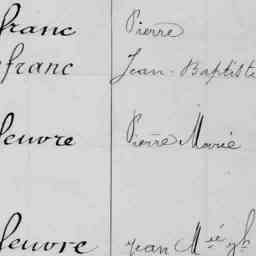 franc Pierre
franc Jean-Baptiste
leuvre Pierre Marie
leuvre Jean Mie